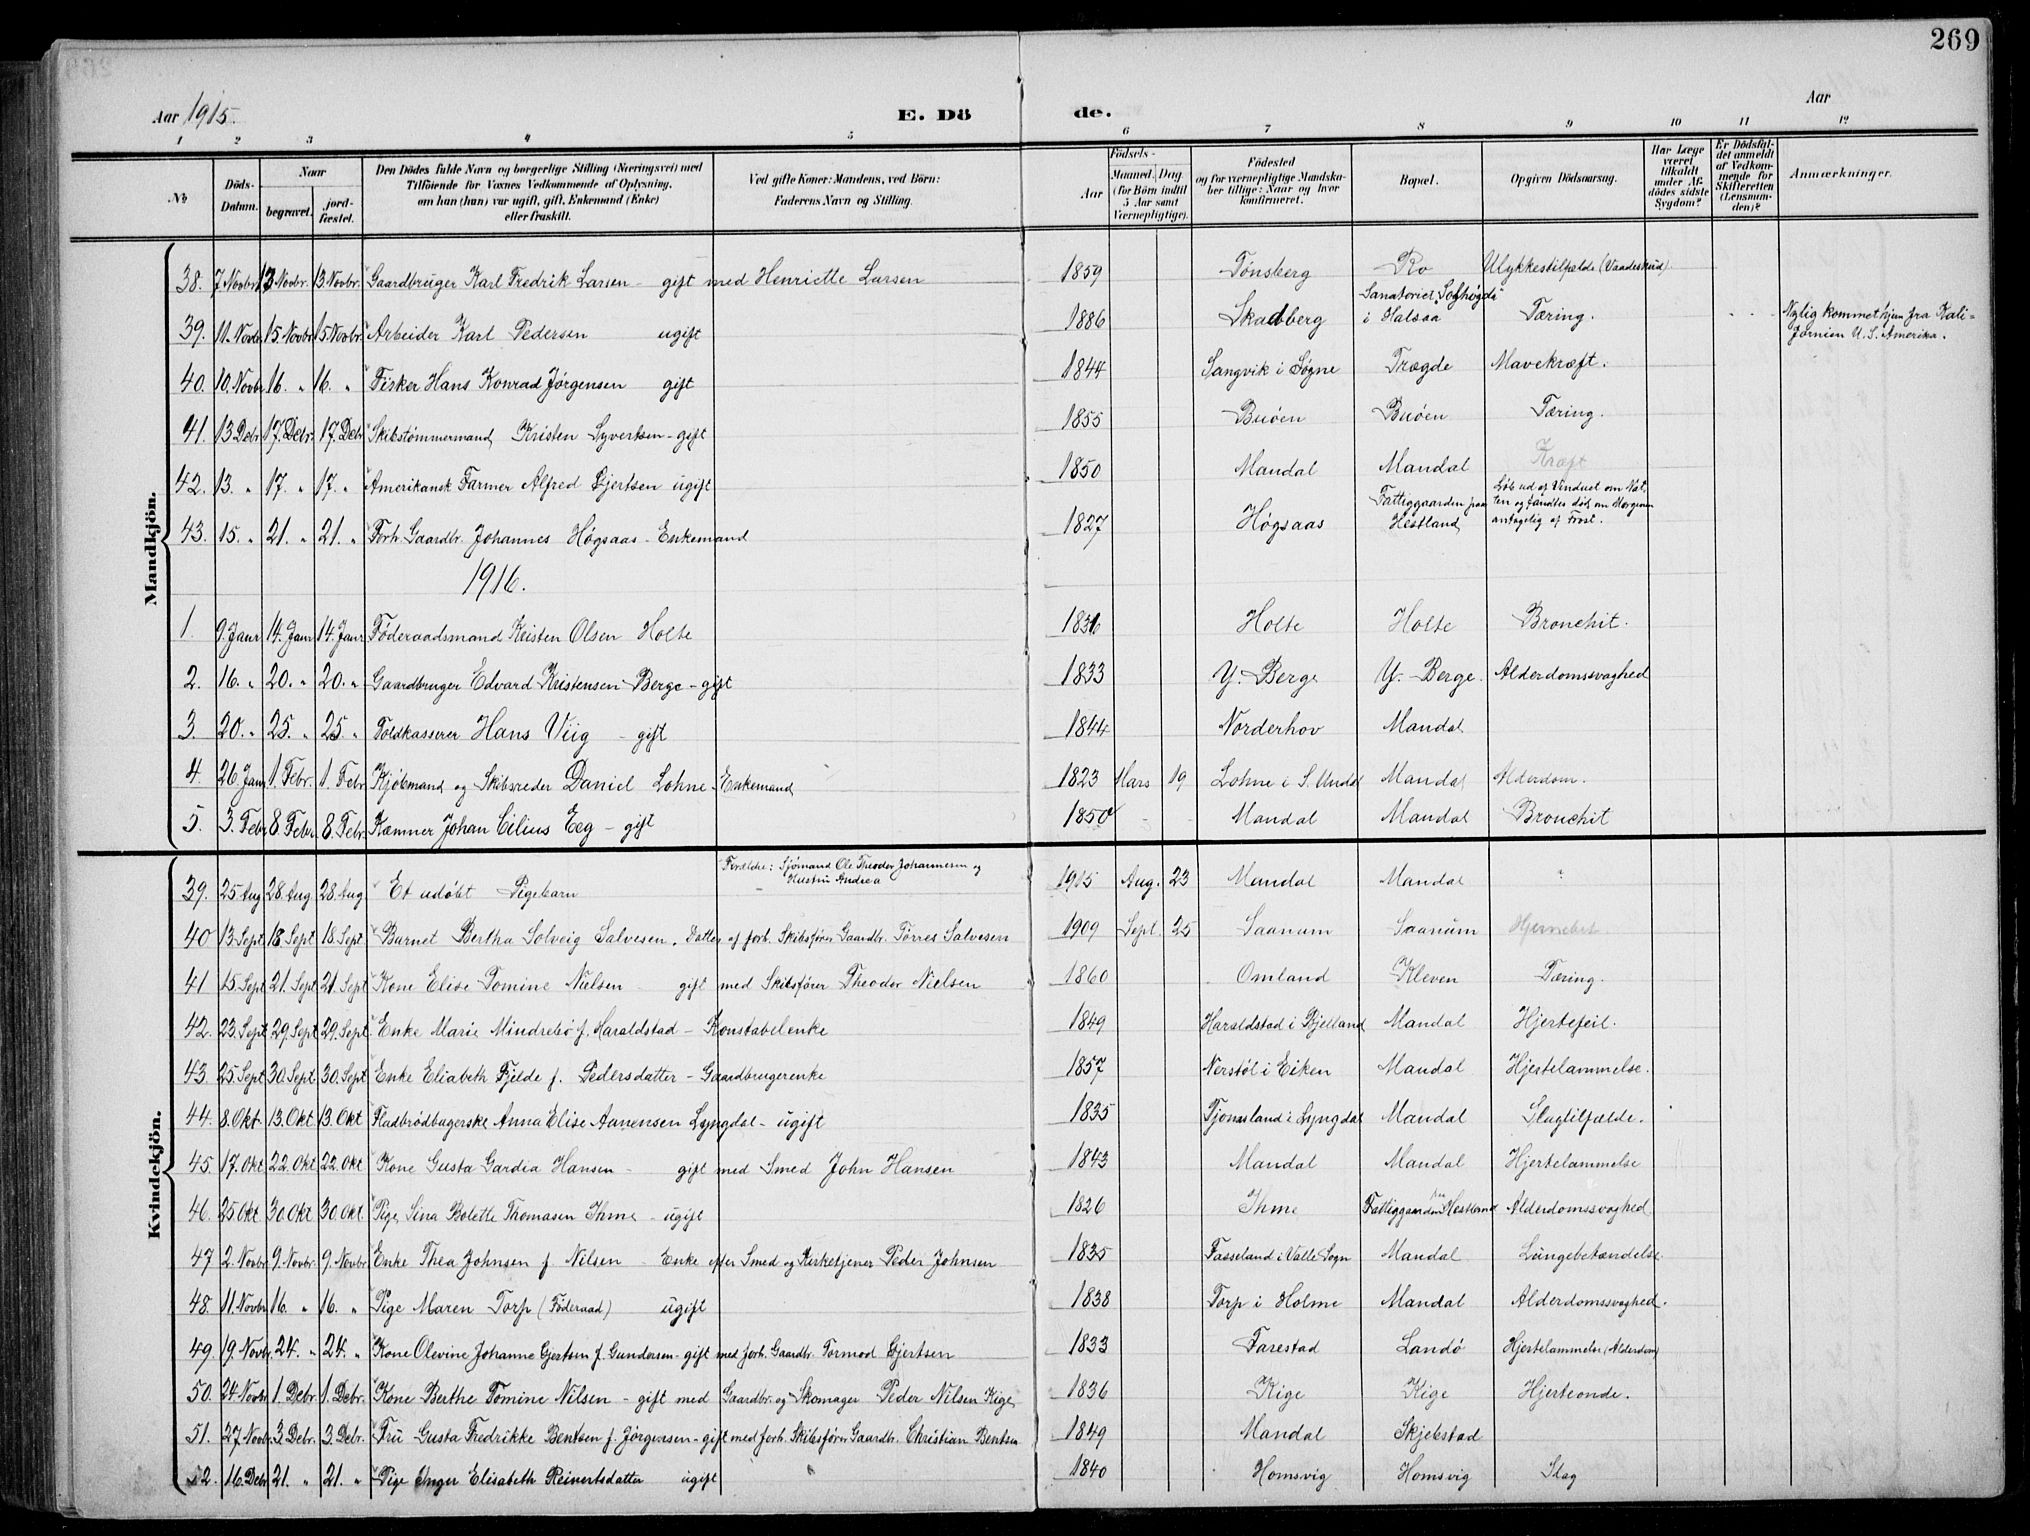 269
Aar 1915.
E. Dö de.
Aar
1 2 3 4 5 6 7 8 9 10 11 12
№
Döds-Datum.
Naar
begravet.
jord-fæstet.
Den Dödes fulde Navn og borgerlige Stilling (Næringsvei) med
Tilföiende for Voxnes Vedkommende af Oplysning,
om han (hun) var ugift, gift, Enkemand (Enke)
eller fraskilt.
Ved gifte Koner: Mandens, ved Börn:
Faderens Navn og Stilling.
Födsels-
Aar
Maaned. Dag
(for Börn indtil
5 Aar samt
Værnepligtige).
Födested
og for værnepligtige Mandska-
ber tillige: Naar og hvor
konfirmeret.
Bopæl.
Opgiven Dödsaarsag.
Har Læge
været
tilkaldt
under Af-
dödes sidste
Sygdom?
Er Dödsfal-
det anmeldt
af Vedkom-
mende for
Skifteretten
(Lensman-
den)?
Anmærkninger.
Mandkjön.
38. 7 Novbr 13 Novbr. 13. Novbr. Gaardbruger Karl Fredrik Larsen - gift med Henriette Larsen 1859 Tønsberg Ro Ulykkestilfælde (Vaadeskud).
39. 11. Novbr 15. Novbr 15. Novbr. Arbeider Karl Pedersen ugift 1886 Skadberg Sanatoriet "Solhøgda" i Halsaa Tæring. Nylig kommet hjem fra Kali-
fornien U. S. Amerika.
40. 10. Novbr 16. " 16. " Fisker Hans Konrad Jørgensen gift 1844 Sangvik i Søgne Trægde Mavekræft.
41. 13 Debr. 17. Debr. 17. Debr Skibstømmermand Kristen Syvertsen - gift 1855 Buøen Buøen Tæring.
42. 13. " 17. " 17. " Amerikansk Farmer Alfred Gjertsen ugift 1850 Mandal Mandal Kræft
43. 15. " 21. " 21. " Forh. Gaardbr. Johannes Høgsaas - Enkemand 1827 Høgsaas Fattiggaarden paa Hestland Løb ud af Vinduet om Nat-
ten og fandtes død om Morgenen
antagelig af Frost.
1916.
1. 9. Janr 14. Janr 14. Janr Føderaadsmand Kristen Olsen Holte 1836 Holte Holte Bronchit.
2. 16. " 20. " 20. " Gaardbruger Edvard Kristensen Berge - gift 1833 Y. Berge Y. Berge. Alderdomssvaghed
3. 20. " 25. " 25. " Toldkasserer Hans Viig - gift 1844 Norderhov Mandal
4. 26. Janr 1. Febr. 1. Febr Kjøbmand og Skibsreder Daniel Lohne - Enkemand 1823 Mars 19 Lohne i S. Undal Mandal Alderdom.
5. 3. Febr 8. Febr 8. Febr. Kæmner Johan Cilius Eeg - gift 1850 - - Mandal Mandal Bronchit
Kvindekjön.
39. 25 Aug 28 Aug 28 Aug Et udøbt Pigebarn Forældre: Sjømand Ole Theodor Johannesen og
Hustru Andrea 1915 Aug. 23 Mandal Mandal "
40 13 Sept 18 Sept 18. Sept Barnet Bertha Solveig Salvesen. Datter af forh. Skibsfører Gaardbr. Tørres Salvesen 1909 Sept. 25 Saanum Saanum
41 15. Sept 21. Sept 21. Sept Kone Elise Tomine Nielsen - gift med Skibsfører Theodor Nielsen 1860 Omland Kleven Tæring.
42. 23 Sept 29. Sept 29. Sept Enke Marie Mindrebø f. Haraldstad - Konstabelenke 1849 Haraldstad i Bjelland Mandal Hjertefeil.
43. 25. Sept 30. Sept 30. Sept Enke Eliabeth Fjelde f. Pedersdatter - Gaardbrugerenke 1857 Nerstøl i Eiken Mandal Hjertelammelse.
44. 8. Okt. 13. Okt 13. Okt Fladbrødbagerske Anna Elise Aanensen Lyngdal - ugift 1835 Tjomsland i Lyngdal Mandal Slagtilfælde.
45. 17. Okt 22. Okt 22. Okt Kone Gusta Gardia Hansen - gift med Smed John Hansen 1843 Mandal Mandal Hjertelammelse
46. 25 Okt 30 Okt 30 Okt. Pige Sina Bolette Thomasen Ihme - ugift 1826 Ihme Fattiggaarden paa Hestland Alderdomssvaghed
47 2. Novbr. 9. Novbr. 9. Novbr Enke Thea Johnsen f. Nilsen - Enke efter Smed og Kirketjener Peder Johnsen 1835 Fasseland i Valle Sogn Mandal Lungebetændelse
48. 11. Novbr 16. " 16. " Pige Maren Torp (Føderaad) ugift 1838 Torp i Holme Mandal Alderdomssvaghed.
49. 19. Novbr. 24. " 24. " Kone Olevine Johanne Gjertsen f. Gundersen - gift med forh. Gaardbr. Tormod Gjertsen 1833 Farestad Landø Hjertelammelse (Alderdom)
50. 24. Novbr 1. Debr. 1. Debr. Kone Berthe Tomine Nilsen - gift med Gaardbr. og Skomager Peder Nilsen Kige 1836 Kige Kige Hjerteonde.
51. 27. Novbr. 3. Debr. 3. Debr. Fru Gusta Fredrikke Bentsen f. Jørgensen - gift med forh. Skibsfører Gaardbr. Christian Bentsen 1849 Mandal Skjebstad
52. 16. Debr 21. " 21. " Pige Inger Elisabeth Reinertsdatter ugift 1840 Homsvig Homsvig Slag